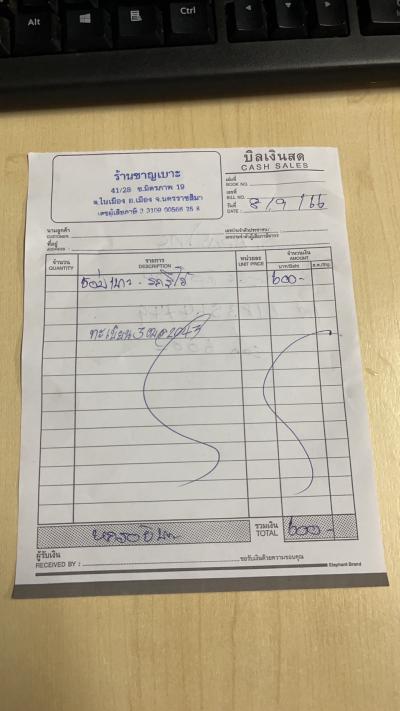 Alt
Ctrl
ร้านชาญเบาะ
41/28 ซ.มิตรภาพ 19
ต.ในเมือง อ.เมือง จ.นครราชสีมา
เลขผู้เสียภาษี 3 3100 00566 25 8
บิลเงินสด
CASH SALES
เล่มที่
BOOK NO.
เลขที่
BILL NO.
วันที่
DATE : 8/9/66
นามลูกค้า
CUSTOMER
ที่อยู่
ADDRESS
เลขประจำตัวประชาชน
เลขประจำตัวผู้เสียภาษีอากร
จำนวน
QUANTITY
รายการ
DESCRIPTION
หน่วยละ
UNIT PRICE
จำนวนเงิน
AMOUNT
บาท/Baht
ส.ต./Stg.
ซ่อมเบาะ 600-
ทะเบียน 3ฒฉ2043
หกร้อยบาท
รวมเงิน
TOTAL 600-
ผู้รับเงิน
RECEIVED BY :
ขอรับเงินด้วยความขอบคุณ
Elephant Brand